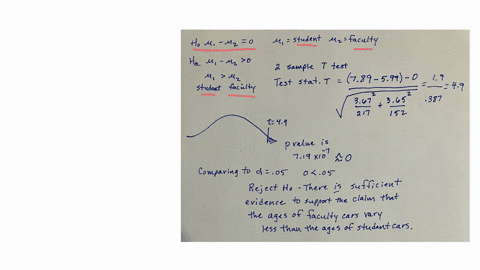 H₀ μ₁ - μ₂ = 0   μ₁ = student   μ₂ = faculty
Ha μ₁ - μ₂ > 0
μ₁ > μ₂
student faculty
2 Sample T test
Test stat. T = (7.89 - 5.99) - 0 / √(3.67²/217 + 3.65²/152) = 1.9/.387 = 4.9
t = 4.9
p value is
7.19 x 10⁻⁷ ≈ 0
Comparing to α = .05   0 < .05
Reject H₀ - There is sufficient
evidence to support the claim that
the ages of faculty cars vary
less than the ages of student cars.